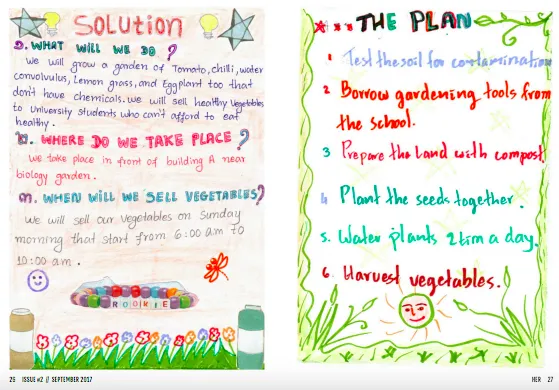 Solution
D. WHAT WILL WE DO ?
We will grow a garden of Tomato, chilli, water
convolvulus, Lemon grass, and Eggplant too that
don't have chemicals. we will sell healthy Vegetables
to University students who can't afford to eat
healthy.
WHERE DO WE TAKE PLACE ?
We take place in front of building A near
biology garden.
m. WHEN WILL WE SELL VEGETABLES?
We will sell our Vegetables on Sunday
morning that start from 6:00 a.m to
10:00 a.m.
ROOKIE
26 ISSUE #2 // SEPTEMBER 2017
THE PLAN
1 Test the soil for contamination
2 Borrow gardening tools from
the school.
3 Prepare the land with compost.
4 Plant the seeds together.
5. Water plants 2tim a day.
6. Harvest vegetables.
HER 27